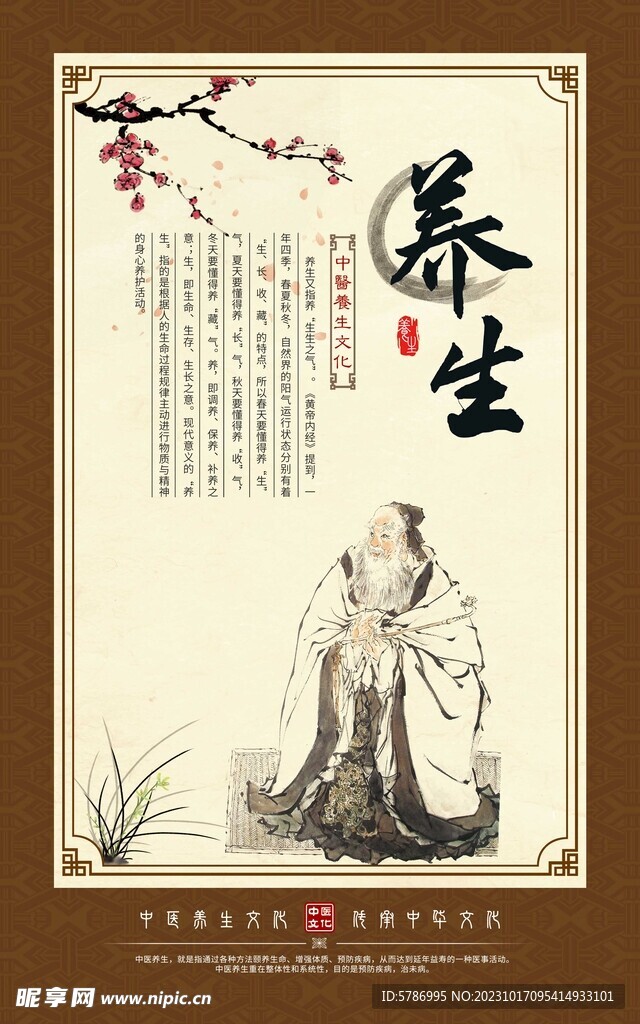 养生
養生
中醫養生文化
养生又指养“生生之气”。《黄帝内经》提到，一
年四季，春夏秋冬，自然界的阳气运行状态分别有着
“生、长、收、藏”的特点，所以春天要懂得养“生”
气，夏天要懂得养“长”气，秋天要懂得养“收”气，
冬天要懂得养“藏”气。养，即调养、保养、补养之
意；生，即生命、生存、生长之意。现代意义的“养
生”指的是根据人的生命过程规律主动进行物质与精神
的身心养护活动。
中医养生文化 中医文化 传承中华文化
中医养生，就是指通过各种方法颐养生命、增强体质、预防疾病，从而达到延年益寿的一种医事活动。
中医养生重在整体性和系统性，目的是预防疾病，治未病。
昵享网 www.nipic.cn
ID:5786995 NO:20231017095414933101